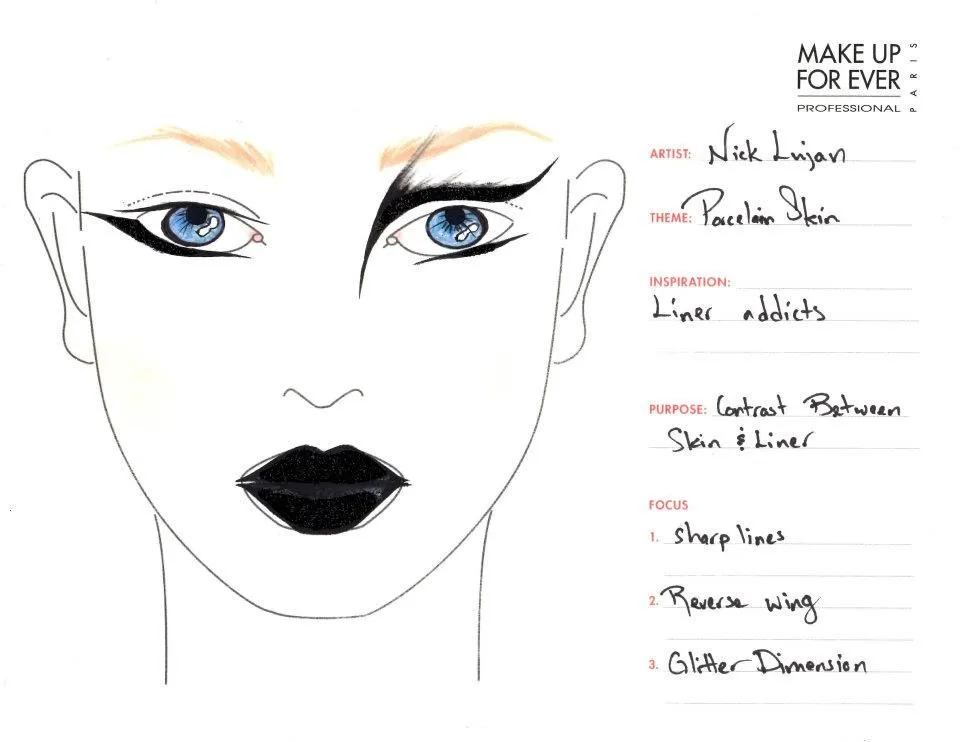 MAKE UP
FOR EVER
PROFESSIONAL
PARIS
ARTIST: Nick Lujan
THEME: Porcelain Skin
INSPIRATION:
Liner addicts
PURPOSE: Contrast Between
Skin & Liner
FOCUS
1. sharp lines
2. Reverse wing
3. Glitter Dimension